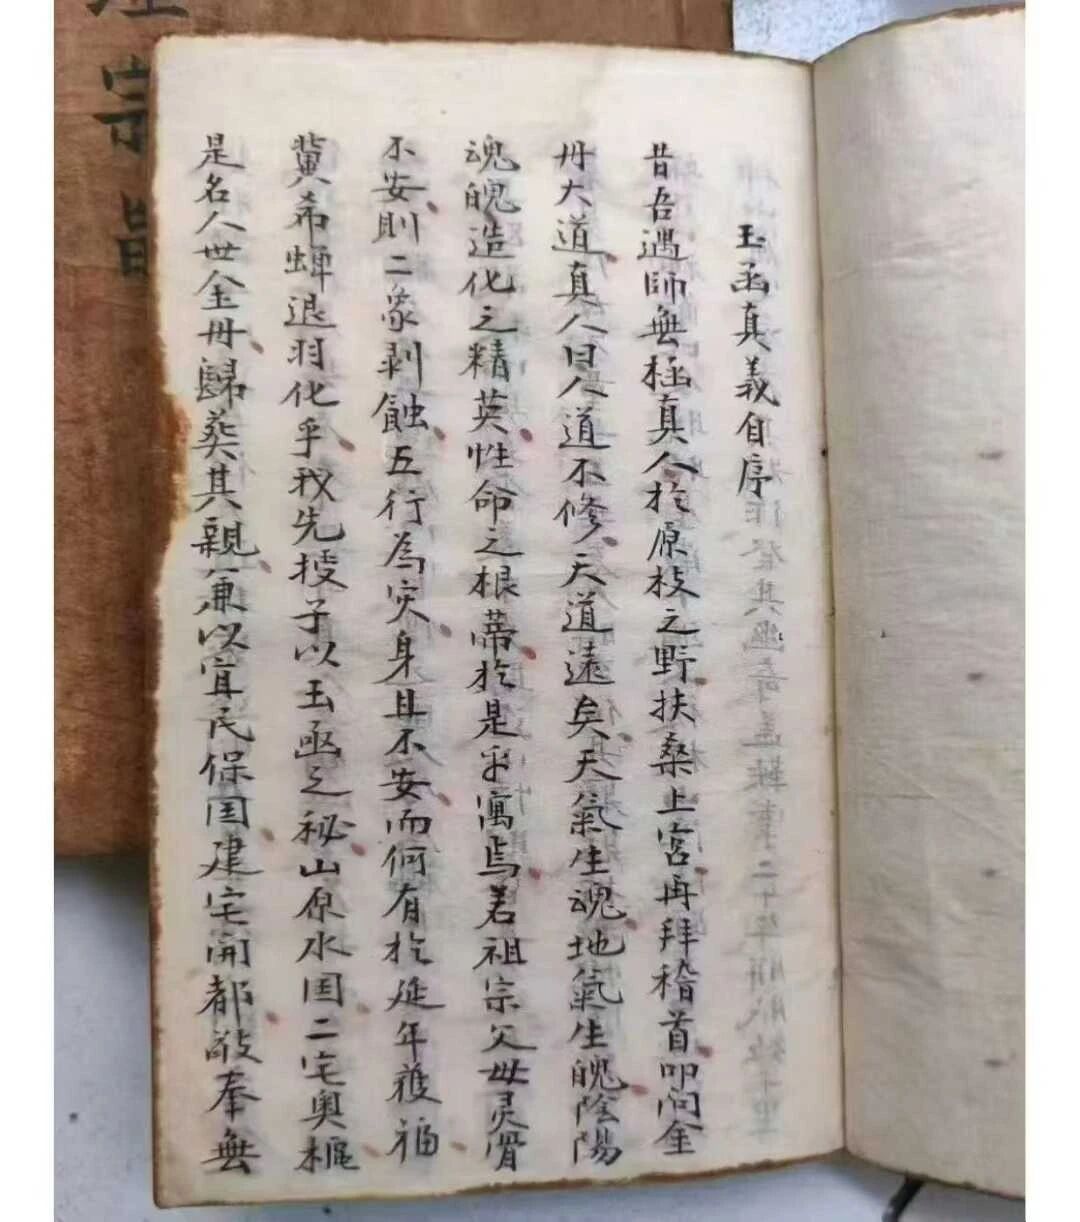 玉函真義自序
昔吾遇師無極真人於原枝之野扶桑上宮再拜稽首叩问金
丹大道真人曰人道不修天道遠矣天氣生魂地氣生魄陰陽
魂魄造化之精英性命之根蒂於是乎寓焉若祖宗父母灵骨
不安則二象剥蝕五行為灾身且不安而何有於延年獲福
冀希蝉退羽化乎我先授子以玉函之秘山原水国二宅奥樞
是名人世金丹歸葬其親兼以宜民保国建宅開都敬奉無
宗旨